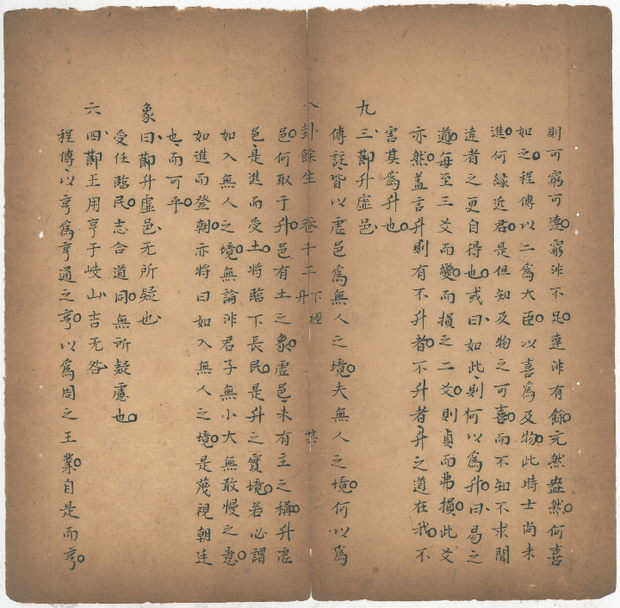 則可窮可達。窮非不足。達非有餘。充然盎然。何喜
如之。程傳以二為大臣。以喜為及物。此時士尚未
進。何緣近君。是但知及物之可喜。而不知不求聞
達者之更自得也。或曰。如此則何以為升。曰。易之
道。每至三爻而變。而損之二爻。則貞而弗損。此爻
亦然。蓋言升則有不升者。不升者。升之道在我。不
害其為升也。
九三升虛邑
傳註皆以虛邑為無人之境。夫無人之境。何以為
八卦餘生 卷十二 下經 升
邑。何取于升。邑有土之象。虛邑。未有主之稱。升虛
邑。是進而受土。將臨下長民。是升之實境。若必謂
如入無人之境。無論非君子無小大無敢慢之意。
如進而登朝。亦將曰如入無人之境。是蔑視朝廷
也。而可乎。
象曰升虛邑无所疑也
受任臨民。志合道同。無所疑慮也。
六四王用亨于岐山吉无咎
程傳以亨為亨通之亨。以為周之王業。自是而亨。